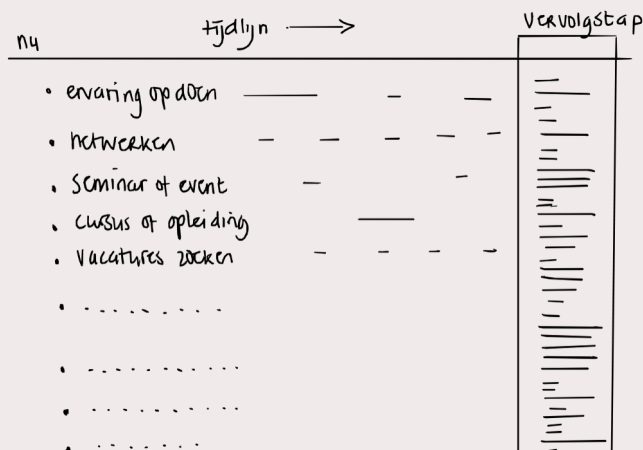 nu tijdlijn → vervolgstap
• ervaring opdoen
• netwerken
• seminar of event
• cursus of opleiding
• vacatures zoeken
• . . . . . . . .
• . . . . . . . . .
• . . . . . . . . .
• . . . . . . .